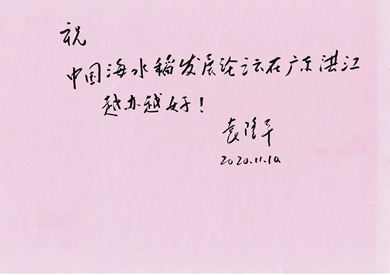 祝
中国海水稻发展论坛在广东湛江
越办越好！
袁隆平
2020.11.10